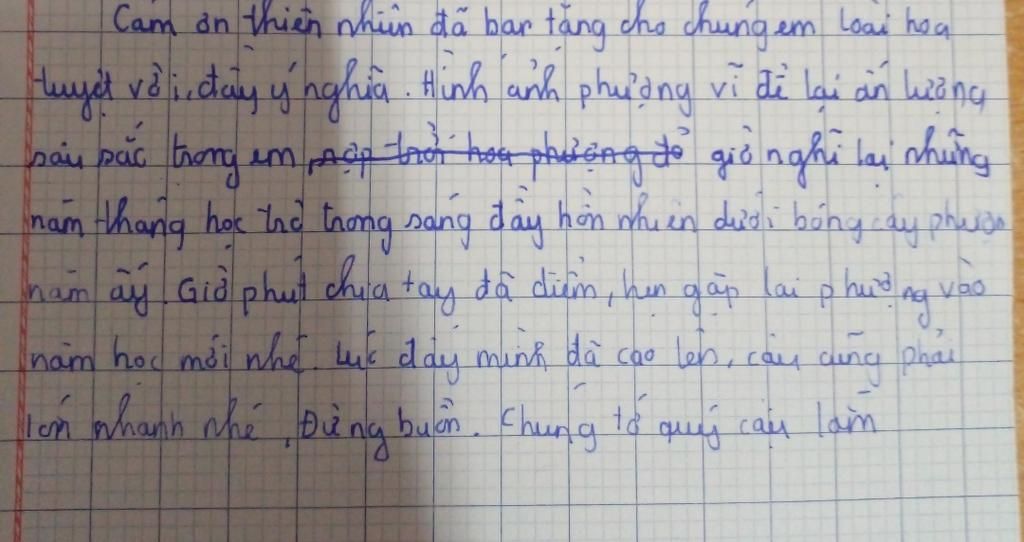 Cảm ơn thiên nhiên đã ban tặng cho chúng em loài hoa
tuyệt vời, đầy ý nghĩa. Hình ảnh phượng vĩ để lại ấn tượng
sâu sắc trong em nộp trời hoa phượng đỏ giờ nghĩ lại những
năm tháng học trò trong sáng đầy hồn nhiên dưới bóng cây phượng
năm ấy. Giờ phút chia tay đã điểm, hẹn gặp lại phượng vào
năm học mới nhé. Lúc đấy mình đã cao lên, cậu cũng phải
lớn nhanh nhé. Đừng buồn. Chúng tớ quý cậu lắm